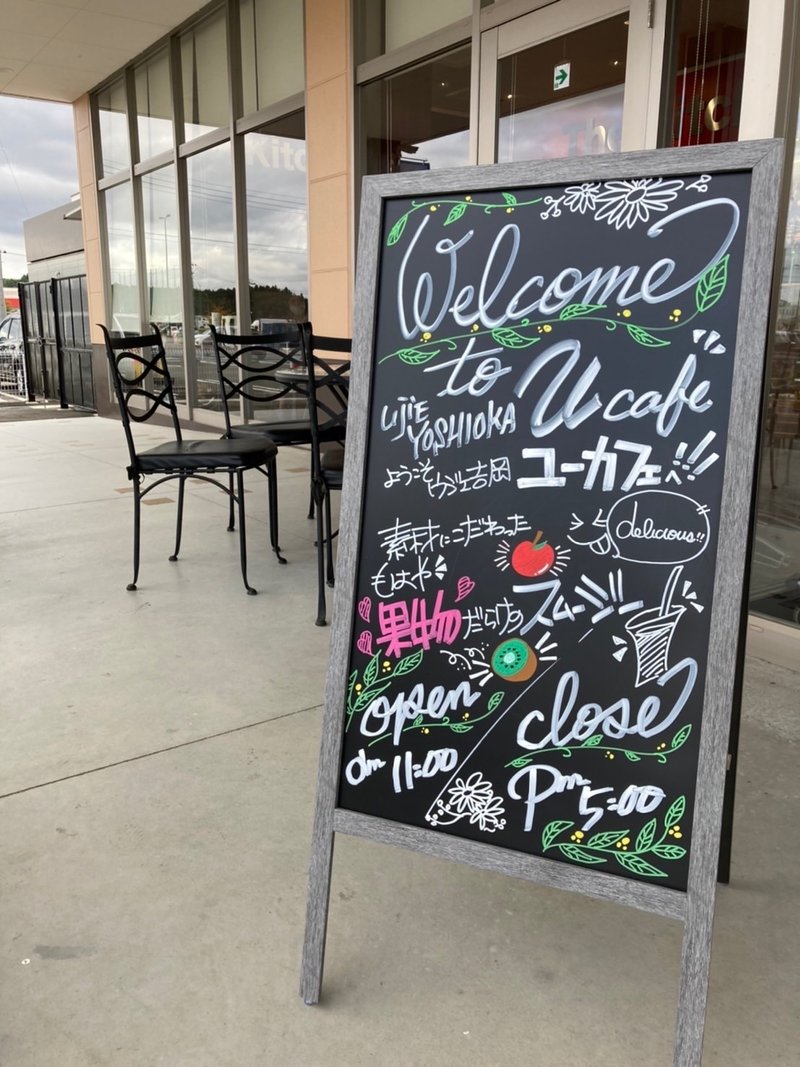 Welcome
to U cafe
UjiE YOSHIOKA
ようこそ ウジエ吉岡 ユーカフェへ!!
素材にこだわった
delicious!!
もはや
果物だらけのスムージー!!
open
am 11:00
close
Pm 5:00
Kitc